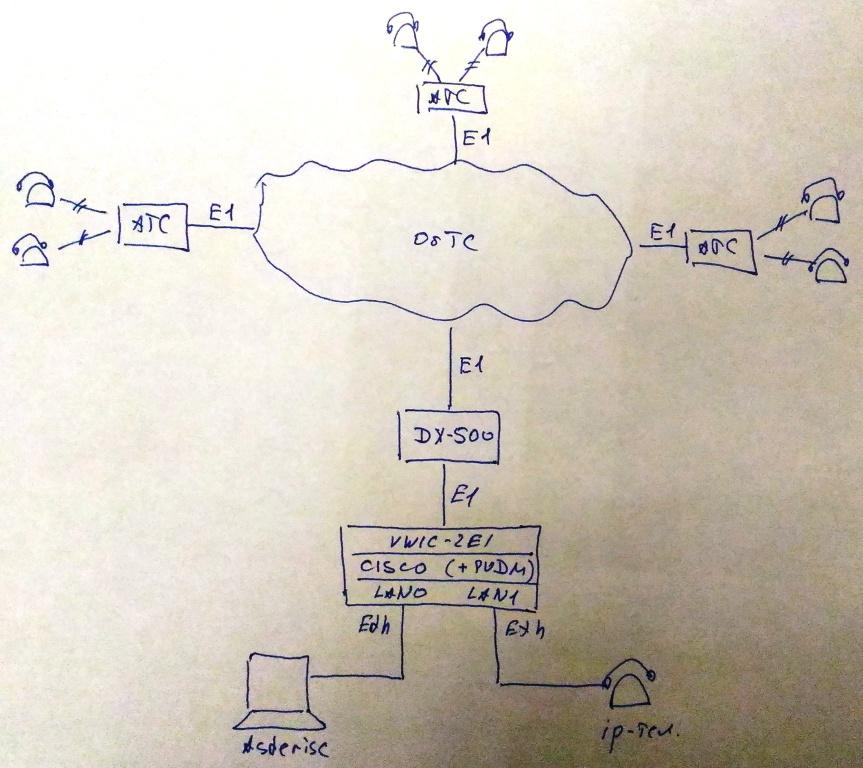 АТС
E1
E1
АТС
ОбТС
E1
АТС
E1
DX-500
E1
VWIC-2E1
CISCO (+PVDM)
LAN0 LAN1
Eth Eth
Asterisc
ip-тел.